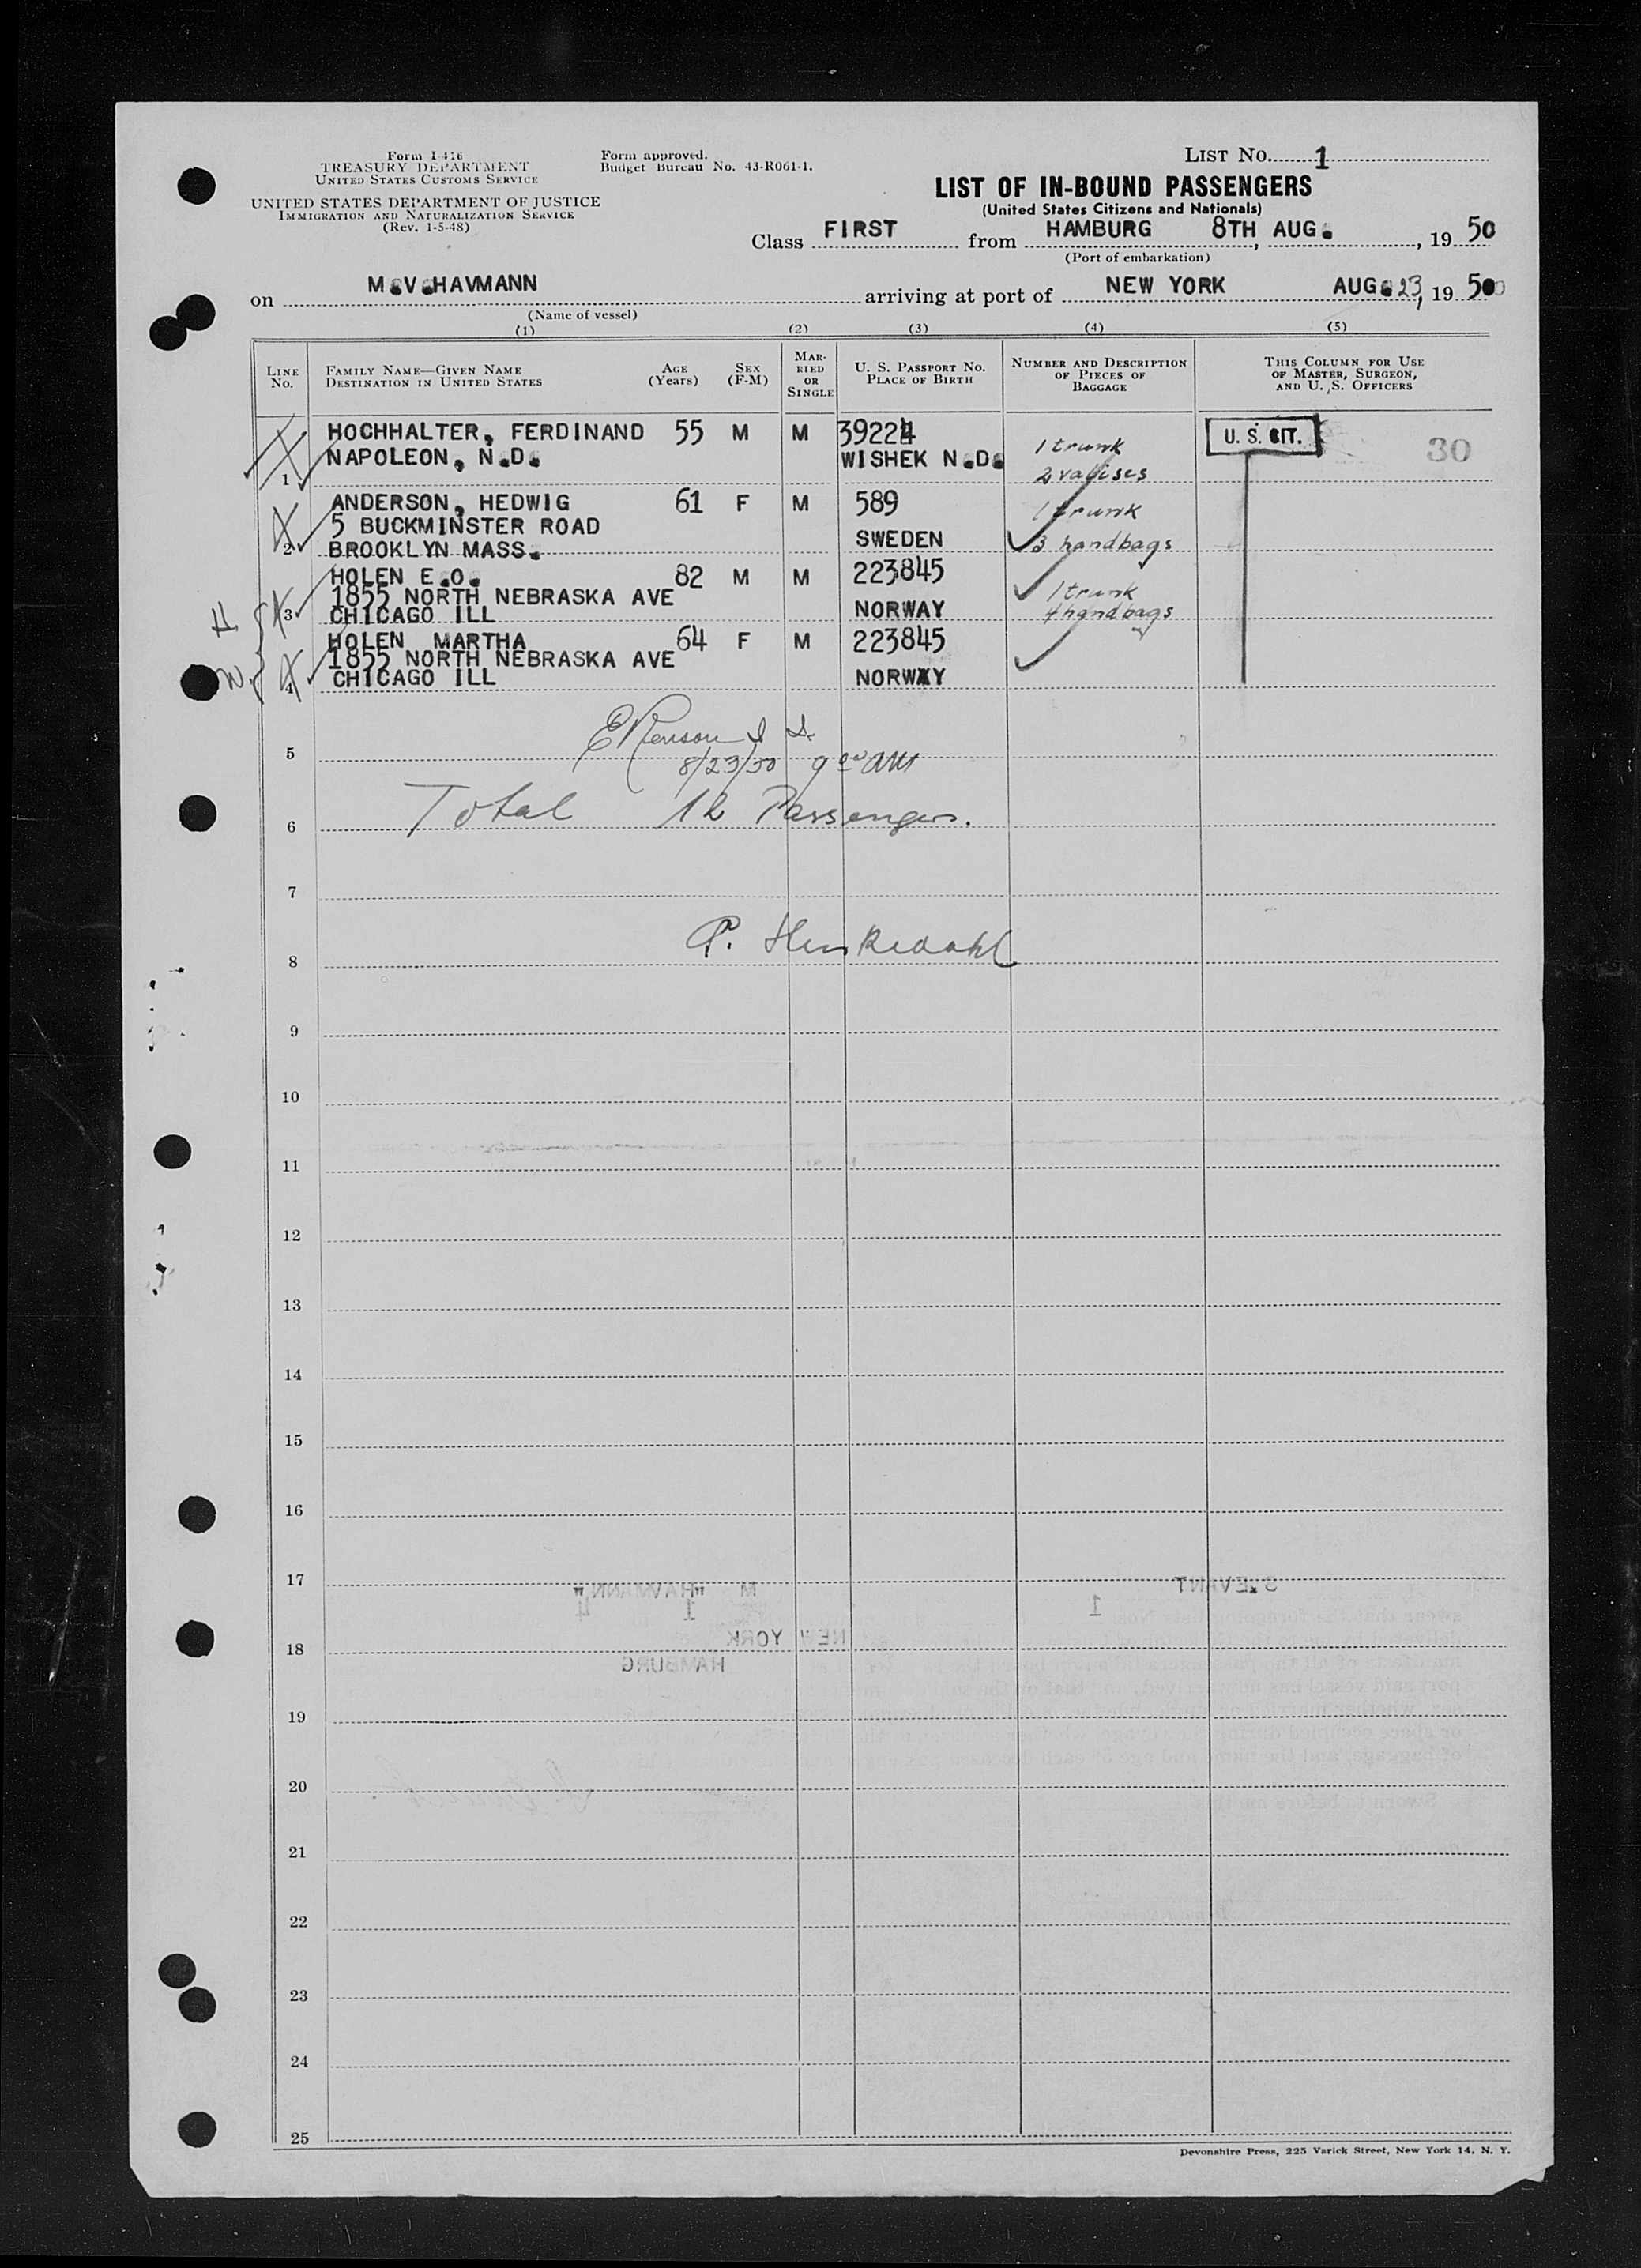 Form I-416
TREASURY DEPARTMENT
UNITED STATES CUSTOMS SERVICE
UNITED STATES DEPARTMENT OF JUSTICE
IMMIGRATION AND NATURALIZATION SERVICE
(Rev. 1-5-48)
Form approved.
Budget Bureau No. 43-R061-1.
LIST No. 1
LIST OF IN-BOUND PASSENGERS
(United States Citizens and Nationals)
Class FIRST from HAMBURG 8TH, AUG., 19 50
(Port of embarkation)
on M.V.HAVMANN arriving at port of NEW YORK AUG. 23, 19 50
(Name of vessel)
(1) (2) (3) (4) (5)
LINE No. FAMILY NAME—GIVEN NAME DESTINATION IN UNITED STATES AGE (Years) SEX (F-M) MARRIED OR SINGLE U. S. PASSPORT No. PLACE OF BIRTH NUMBER AND DESCRIPTION OF PIECES OF BAGGAGE THIS COLUMN FOR USE OF MASTER, SURGEON, AND U. S. OFFICERS
HOCHHALTER, FERDINAND 55 M M 39224 1 trunk U. S. CIT. 30
NAPOLEON, N.D. WISHEK N.D.
1 2 valises
ANDERSON, HEDWIG 61 F M 589 1 trunk
5 BUCKMINSTER ROAD SWEDEN
2 BROOKLYN MASS. 3 handbags
HOLEN E.O. 82 M M 223845
H 1855 NORTH NEBRASKA AVE 1 trunk
3 CHICAGO ILL NORWAY 4 handbags
HOLEN MARTHA 64 F M 223845
1855 NORTH NEBRASKA AVE
W 4 CHICAGO ILL NORWAY
5
8/23/50 9 00 AM
6 Total 12 Passengers.
7
8
9
10
11
12
13
14
15
16
17 M "HAVMANN" S.EVANT
1 4 1
18 NEW YORK
HAMBURG
19
20
21
22
23
24
25
Devonshire Press, 225 Varick Street, New York 14, N. Y.